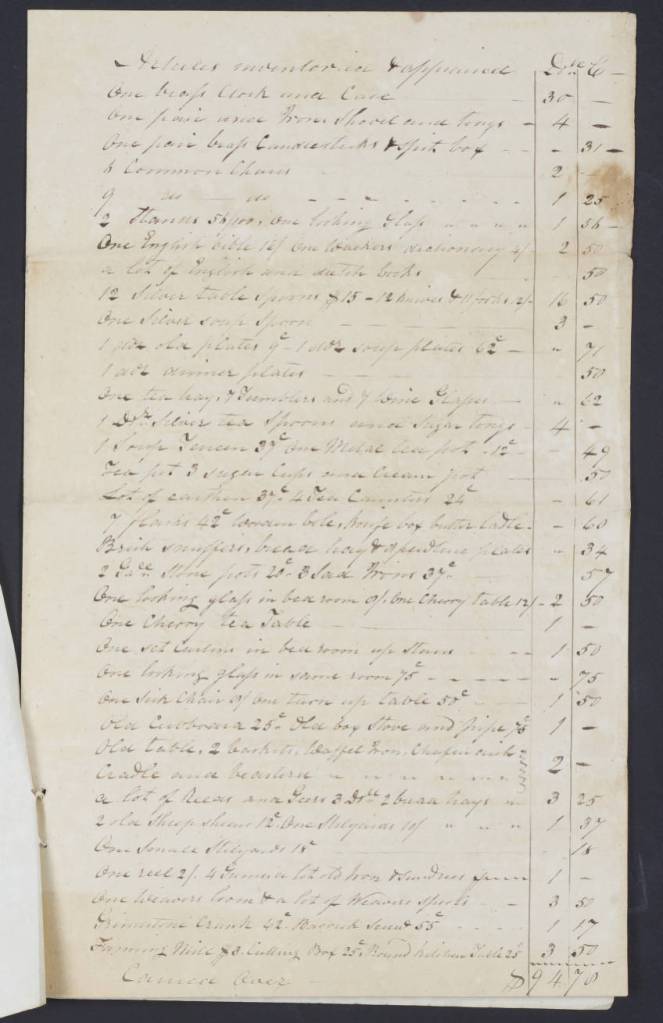 Articles inventoried & appraised Dlls C
One brass Clock and Case 30 —
One pair Irons Shovel and tongs — 4 —
One pair brass Candlesticks & Spit box - - 31
8 Common Chairs 2
9 do — do - - - - 1 25
2 Stands One looking Glass 1 56
One English bible 12/ One Walkers dictionary 4/ 2 50
a lot of English and dutch books 50
12 Silver table Spoons $15 - 12 knives & 11 forks 12/ 16 50
One Silver soup Spoon 3 -
1 doz old plates 9c - 1 doz soup plates 62c - " 71
1 doz dinner plates 50
One tea tray, 7 Tumblers and 7 Wine Glasses " 62
1 Doz Silver tea Spoons and Sugar tongs - 4 -
1 Soup Tureen 37c One Metal tea pot 12c - 49
Tea pot 3 Sugar Cups and Cream pot .50
Lot of earthen 37c 4 Tea Canisters 24c - 61
7 flasks 42c wooden bole, knife box butter ladle - 60
snuffers, bread tray & plates " 34
2 Stone pots 20c 3 Sad Irons 37c 57
One looking glass in bed room 9/. One Cherry table 12/ - 2 50
One Cherry tea Table 1 -
One set Curtins in bed room up Stairs - - 1 50
One looking glass in same room 75c - - - - - 75
One Sick Chair 9/ One turn up table 50c - - - 1 50
Old Cubboard 25c Old box Stove and pipe 75c 1 -
Old table, 2 baskets, Waffel Iron,
Cradle and 2 -
a lot of Reeds and Gears 3 2 bread trays 3 25
2 old Sheep shears 12c One Stilyards 10/ " " " 1 37
One Small Stilyards 18c 18
One reel 2/. lot old Iron & Sundries 1 -
One Weavers loom & a lot of Weavers Spools - - 3 50
Grindstone Crank 42c 55c - - - - 1 17
Fanning Mill $3. Cutting Box 25c Round kitchen Table 25c 3 50
Carried Over $ 94 78